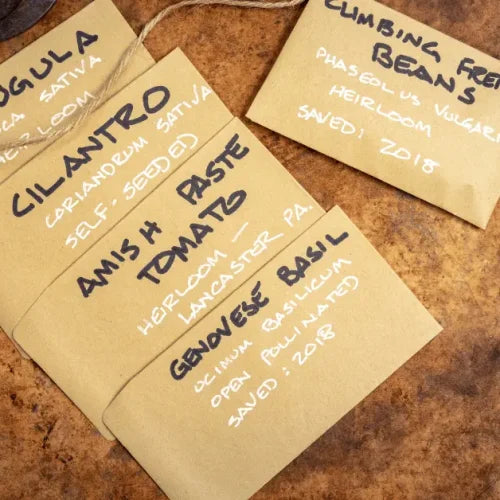 OGULA
CA SATIVA
HEIRLOOM
CILANTRO
CORIANDRUM SATIVA
SELF-SEEDED
AMISH PASTE
TOMATO
HEIRLOOM —
LANCASTER PA.
GENOVESE BASIL
OCIMUM BASILICUM
OPEN POLLINATED
SAVED: 2018
CLIMBING FRE
BEANS
PHASEOLUS VULGARI
HEIRLOOM
SAVED: 2018